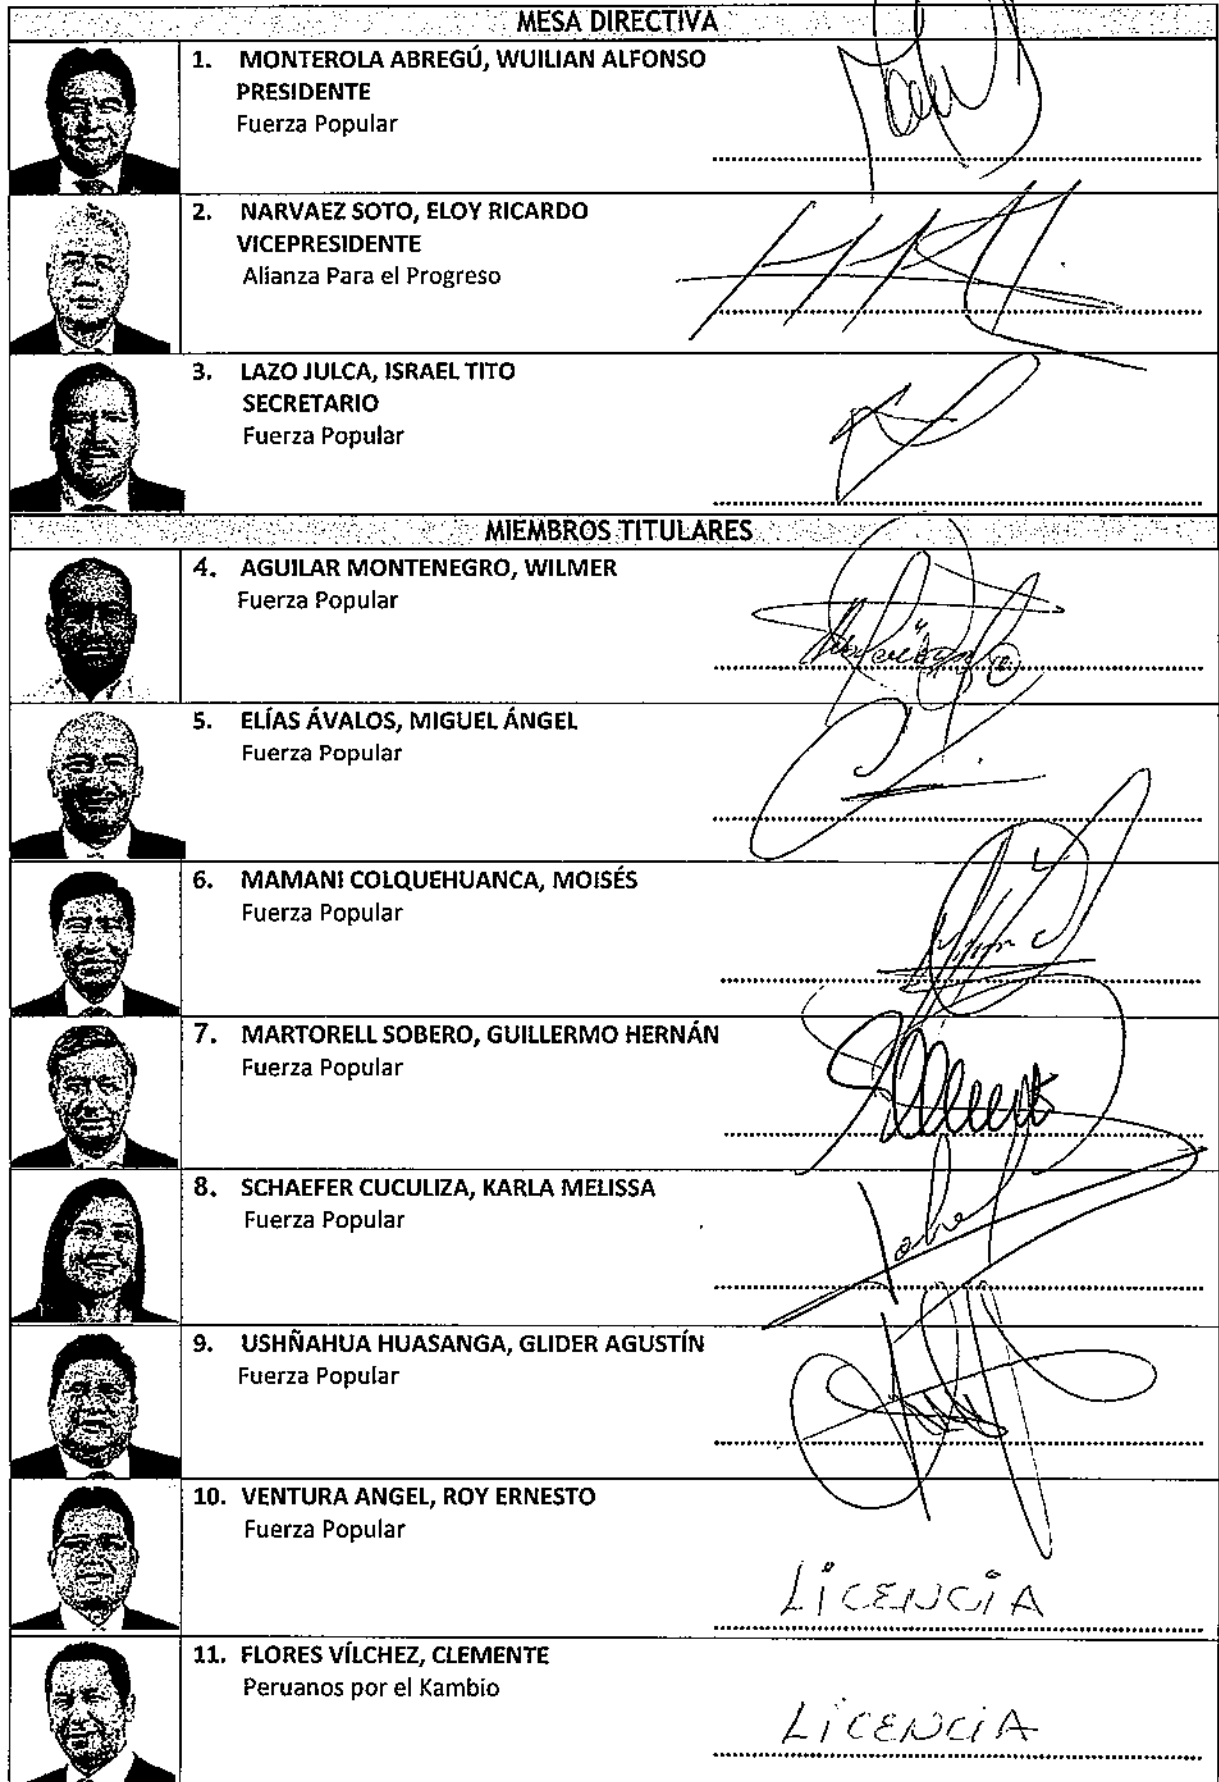 MESA DIRECTIVA
1. MONTEROLA ABREGÚ, WUILIAN ALFONSO
PRESIDENTE
Fuerza Popular
2. NARVAEZ SOTO, ELOY RICARDO
VICEPRESIDENTE
Alianza Para el Progreso
3. LAZO JULCA, ISRAEL TITO
SECRETARIO
Fuerza Popular
MIEMBROS TITULARES
4. AGUILAR MONTENEGRO, WILMER
Fuerza Popular
5. ELÍAS ÁVALOS, MIGUEL ÁNGEL
Fuerza Popular
6. MAMANI COLQUEHUANCA, MOISÉS
Fuerza Popular
7. MARTORELL SOBERO, GUILLERMO HERNÁN
Fuerza Popular
8. SCHAEFER CUCULIZA, KARLA MELISSA
Fuerza Popular
9. USHÑAHUA HUASANGA, GLIDER AGUSTÍN
Fuerza Popular
10. VENTURA ANGEL, ROY ERNESTO
Fuerza Popular
LICENCIA
11. FLORES VÍLCHEZ, CLEMENTE
Peruanos por el Kambio
LICENCIA